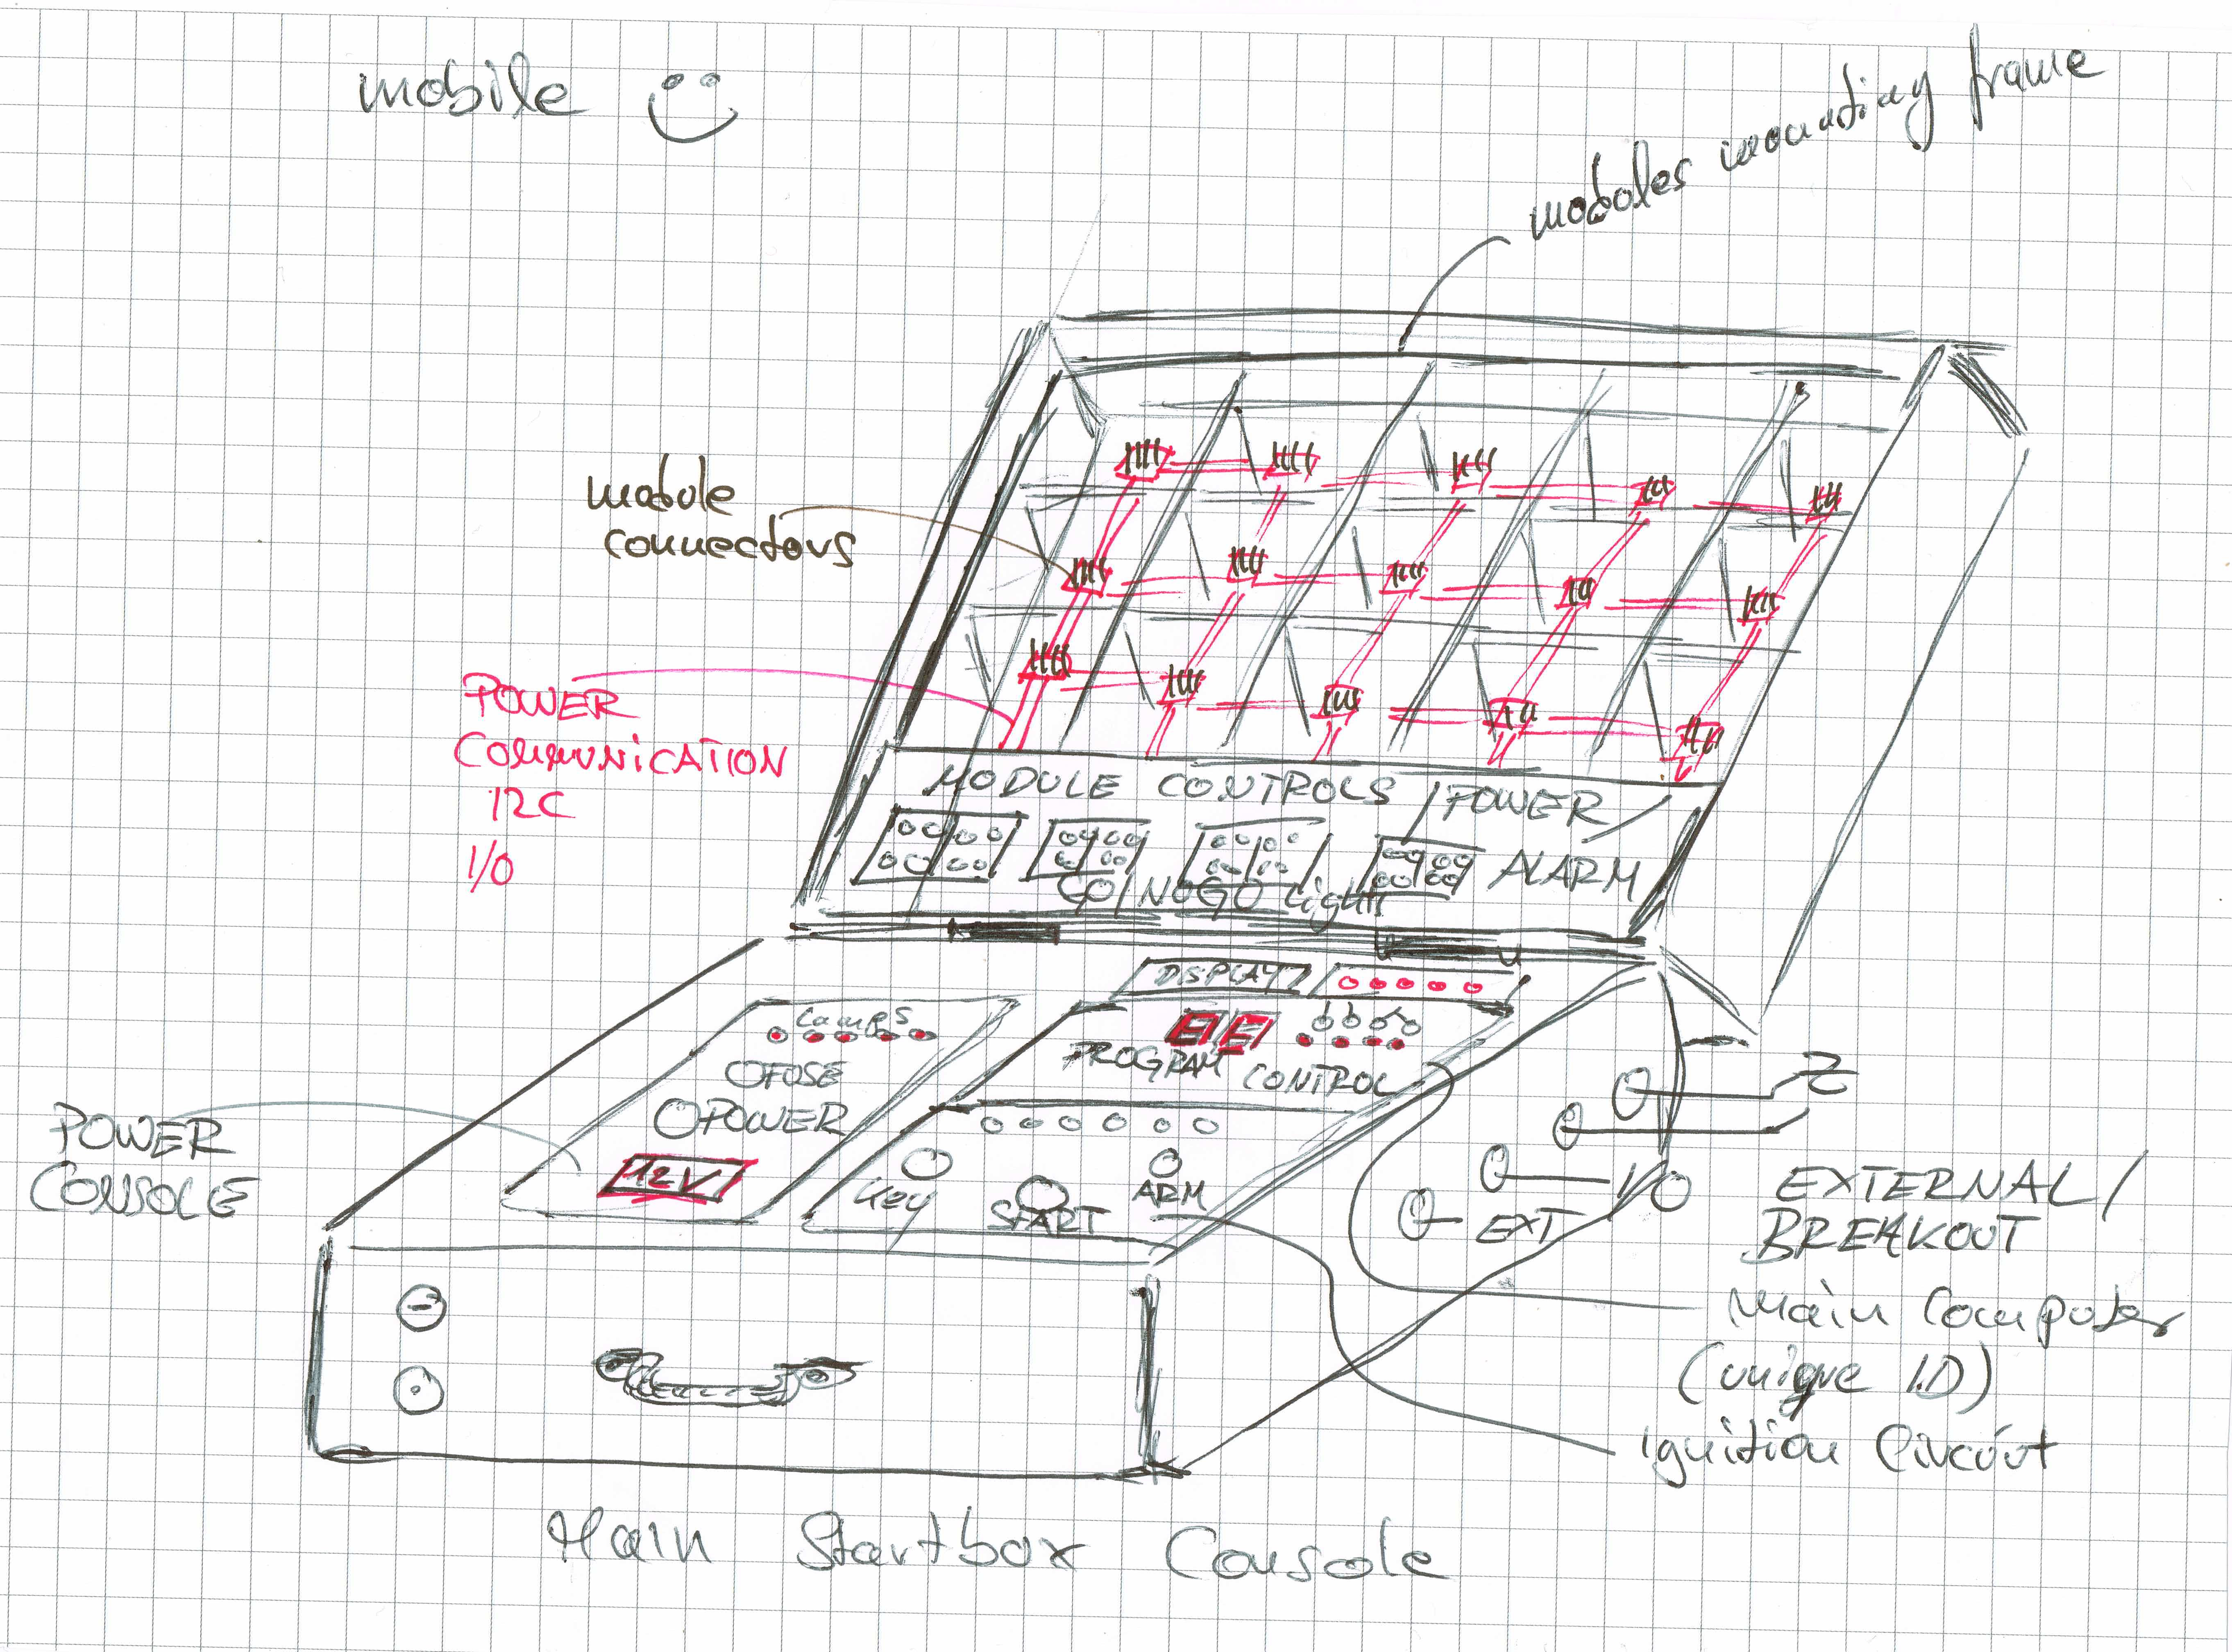 mobile
modules mounting frame
module
connectors
POWER
COMMUNICATION
I2C
I/O
MODULE CONTROLS
POWER
ALARM
GO/NOGO lights
DISPLAY
Lamps
FUSE
POWER
12V
PROGRAM CONTROL
Key
START
ARM
POWER
CONSOLE
I/O
EXT
EXTERNAL/
BREAKOUT
Main Computer
(unique I.D)
Ignition Circuit
Main Startbox Console